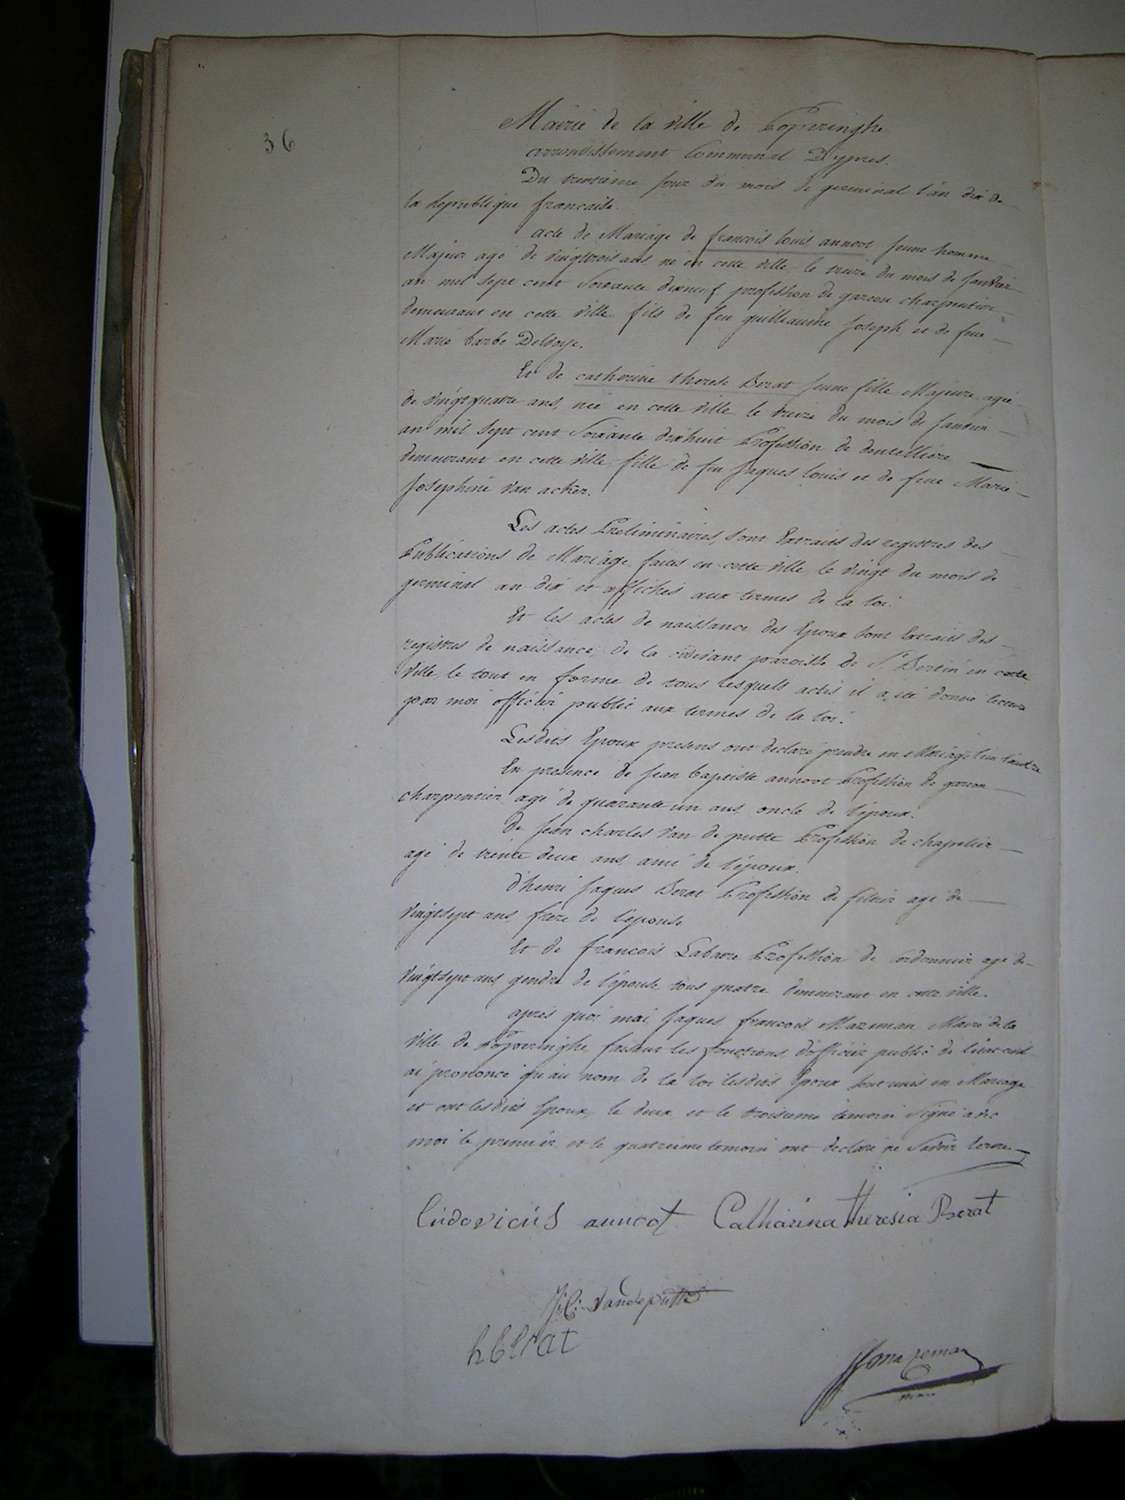 36
Mairie de la ville de Poperinghe
arrondissement Communal D'ypres.
Du trentieme jour du mois de germinal l'an dix de
la Republique francaise.
acte de Mariage de francois louis annoot jeune homme
Majeur agé de vingttrois ans né en cette ville le treize du mois de janvier
an mil sept cent Soixante dixneuf profession de garcon charpentier
demeurant en cette ville fils de feu guilleaume joseph et de feue
Marie barbe
Et de catherine therese Berat jeune fille Majeure agée
de vingtquatre ans, née en cette ville le treize du mois de janvier
an mil sept cent Soixante dixhuit Profession de dentelliere
demeurant en cette ville fille de feu jaques louis et de feue Marie
josephine van acker.
Les actes Preliminaires sont Extraits des registres des
Publications de Mariage faites en cette ville le vingt du mois de
germinal an dix et affichés aux termes de la loi.
Et les actes de naissance des Epoux sont Extraits des
registres de naissance de la cidevant paroisse de St Bertin en cette
ville le tout en forme de tous lesquels actes il a été donné lecture
par moi officier public aux termes de la loi.
Lesdits Epoux presens ont declaré prendre en Mariage l'un l'autre
En presence de jean baptiste annoot Profession de garcon
charpentier agé de quarante un ans oncle de l'epoux.
De jean charles van de putte Profession de chapelier
agé de trente deux ans ami de l'époux.
d'henri jaques Berat Profession de agé de
vingtsept ans frere de l'epouse
Et de francois Labaere Profession de cordonnier agé de
vingtsept ans gendre de l'épouse tous quatre demeurant en cette ville.
apres quoi moi jaques francois Mazeman Maire de la
ville de Poperinghe faisant les fonctions d'officier public de l'état civil
ai prononcé qu'au nom de la loi lesdits Epoux sont unis en Mariage
et ont lesdits Epoux, le deux et le troisieme temoin Signé avec
moi le premier et le quatrieme temoin ont declaré ne Savoir Ecrire.
ludovicus annoot Catharina theresia Berat
J: C: Vandeputte
h Berat
Mazeman